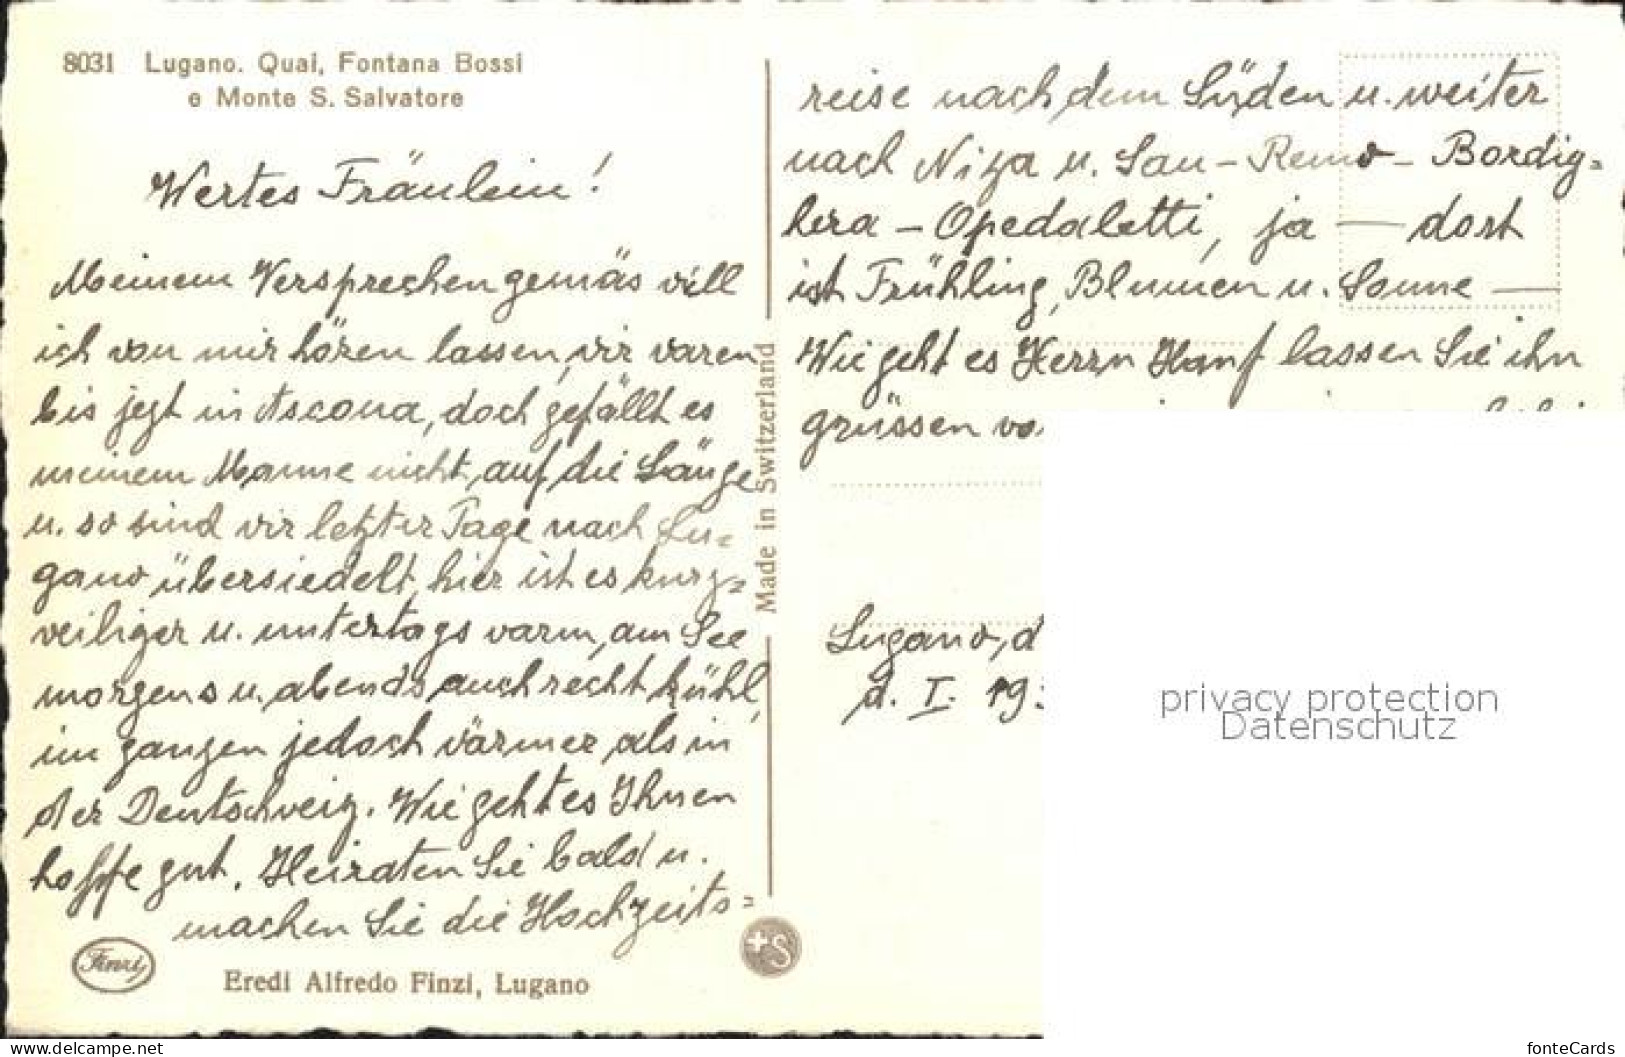 8031 Lugano. Quai, Fontana Bossi
e Monte S. Salvatore
Wertes Fräulein!
Meinem Versprechen gemäs will
ich von mir hören lassen, wir waren
bis jezt in Ascona, doch gefällt es
meinem Manne nicht, auf die Länge
u. so sind wir letzter Tage nach Lu=
gano übersiedelt, hier ist es kurz=
weiliger u. untertags warm, am See
morgens u. abends auch recht kühl,
im ganzen jedoch wärmer als in
der Deutschweiz. Wie geht es Ihnen
hoffe gut. Heiraten Sie bald u.
machen Sie die Hochzeits=
Finzi
Eredi Alfredo Finzi, Lugano
Made in Switzerland
+S
reise nach dem Süden u. weiter
nach Niza u. San-Remo-Bordig=
hera - Opedaletti, ja — dort
ist Frühling, Blumen u. Sonne —
Wie geht es Herrn Hanf lassen Sie ihn
grüssen
Lugano, d
d. I. 19
privacy protection
Datenschutz
https://www.delcampe.net
fonteCards